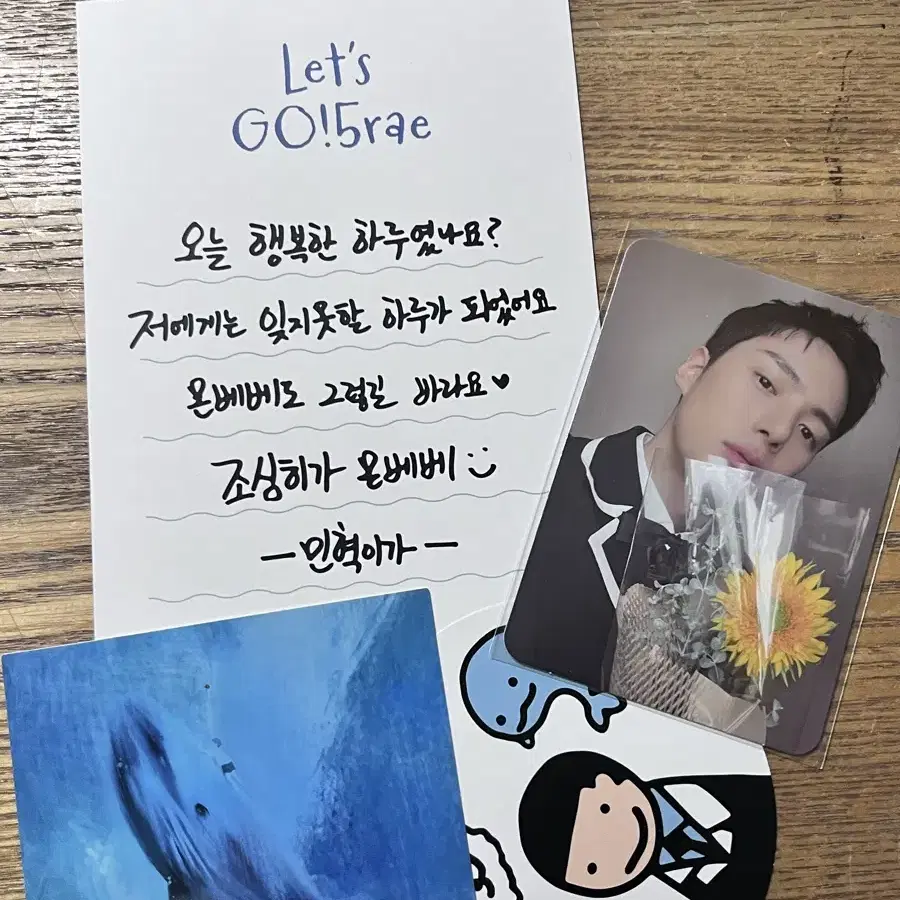 Let's
GO!5rae
오늘 행복한 하루였나요?
저에게는 잊지못할 하루가 되었어요
몬베베도 그렇길 바라요♥
조심히가 몬베베 :)
—민혁이가—